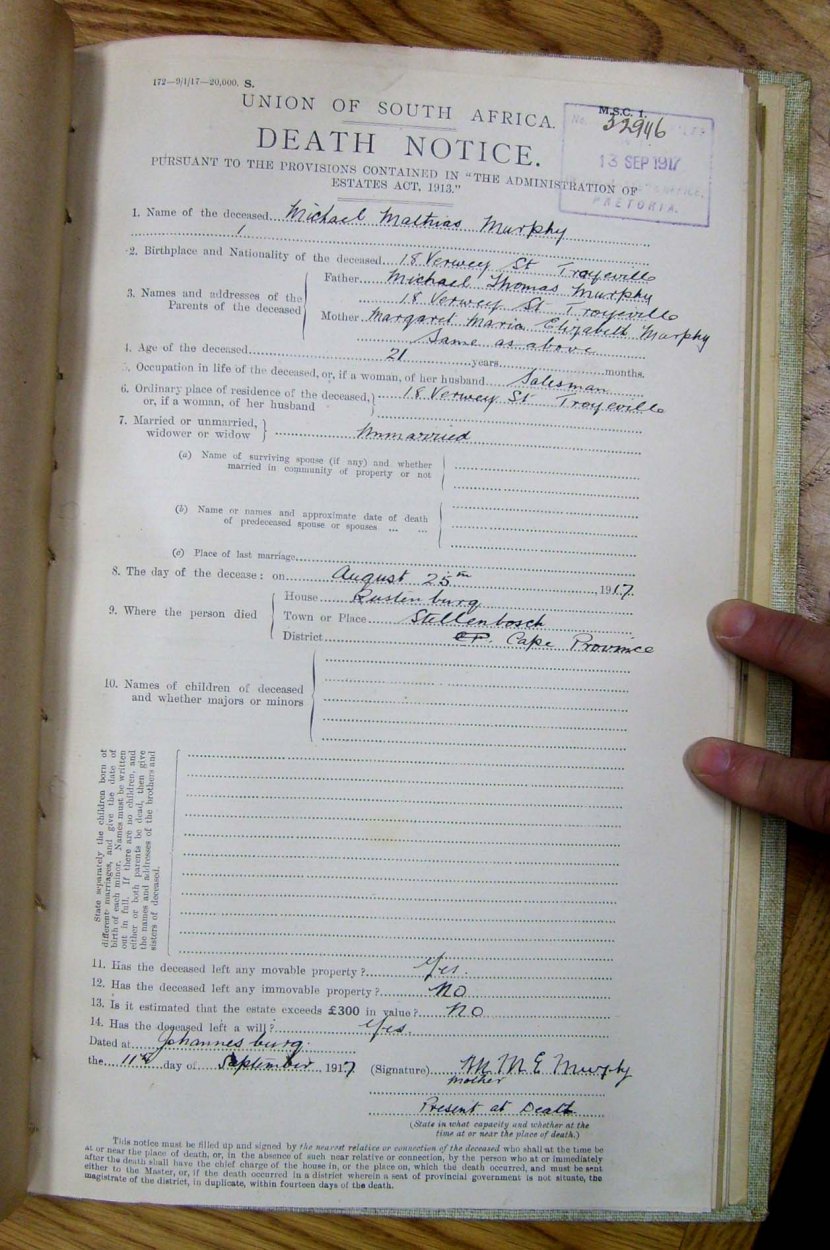 172—9/1/17—20,000. S.
M.S.C. 1.
UNION OF SOUTH AFRICA.
No. 32946
DEATH NOTICE.
13 SEP 1917
PRETORIA.
PURSUANT TO THE PROVISIONS CONTAINED IN "THE ADMINISTRATION OF
ESTATES ACT, 1913."
1. Name of the deceased Michael Mathias Murphy
2. Birthplace and Nationality of the deceased 18 Verwey St Troyeville
3. Names and addresses of the Parents of the deceased
Father Michael Thomas Murphy
18 Verwey St Troyeville
Mother Margaret Maria Elizabeth Murphy
Same as above
4. Age of the deceased 21 years months.
5. Occupation in life of the deceased, or, if a woman, of her husband Salesman
6. Ordinary place of residence of the deceased, 18 Verwey St Troyeville
or, if a woman, of her husband
7. Married or unmarried, Unmarried
widower or widow
(a) Name of surviving spouse (if any) and whether
married in community of property or not
(b) Name or names and approximate date of death
of predeceased spouse or spouses ... ...
(c) Place of last marriage
8. The day of the decease: on August 25th 1917
9. Where the person died
House Rustenburg
Town or Place Stellenbosch
District CP. Cape Province
10. Names of children of deceased
and whether majors or minors
State separately the children born of
different marriages, and give the date of
birth of each minor. Names must be written
out in full. If there are no children, and
either or both parents be dead, then give
the names and addresses of the brothers and
sisters of deceased.
11. Has the deceased left any movable property? Yes.
12. Has the deceased left any immovable property? No
13. Is it estimated that the estate exceeds £300 in value? No
14. Has the deceased left a will? Yes.
Dated at Johannesburg.
the 11th day of September 1917 (Signature) M M E Murphy
Mother
Present at Death
(State in what capacity and whether at the
time at or near the place of death.)
This notice must be filled up and signed by the nearest relative or connection of the deceased who shall at the time be
at or near the place of death, or, in the absence of such near relative or connection, by the person who at or immediately
after the death shall have the chief charge of the house in, or the place on, which the death occurred, and must be sent
either to the Master, or, if the death occurred in a district wherein a seat of provincial government is not situate, the
magistrate of the district, in duplicate, within fourteen days of the death.